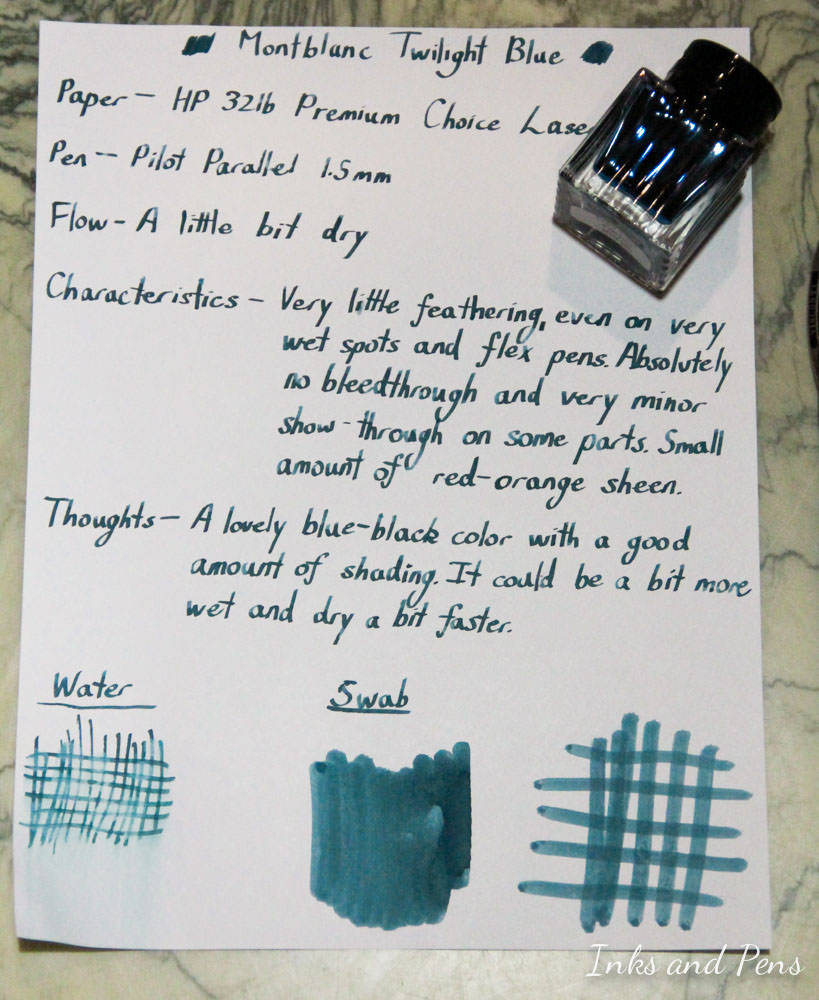 Montblanc Twilight Blue
Paper - HP 32lb Premium Choice Lase
Pen -- Pilot Parallel 1.5mm
Flow - A little bit dry
Characteristics - Very little feathering, even on very
wet spots and flex pens. Absolutely
no bleedthrough and very minor
show-through on some parts. Small
amount of red-orange sheen.
Thoughts - A lovely blue-black color with a good
amount of shading. It could be a bit more
wet and dry a bit faster.
Water
Swab
Inks and Pens